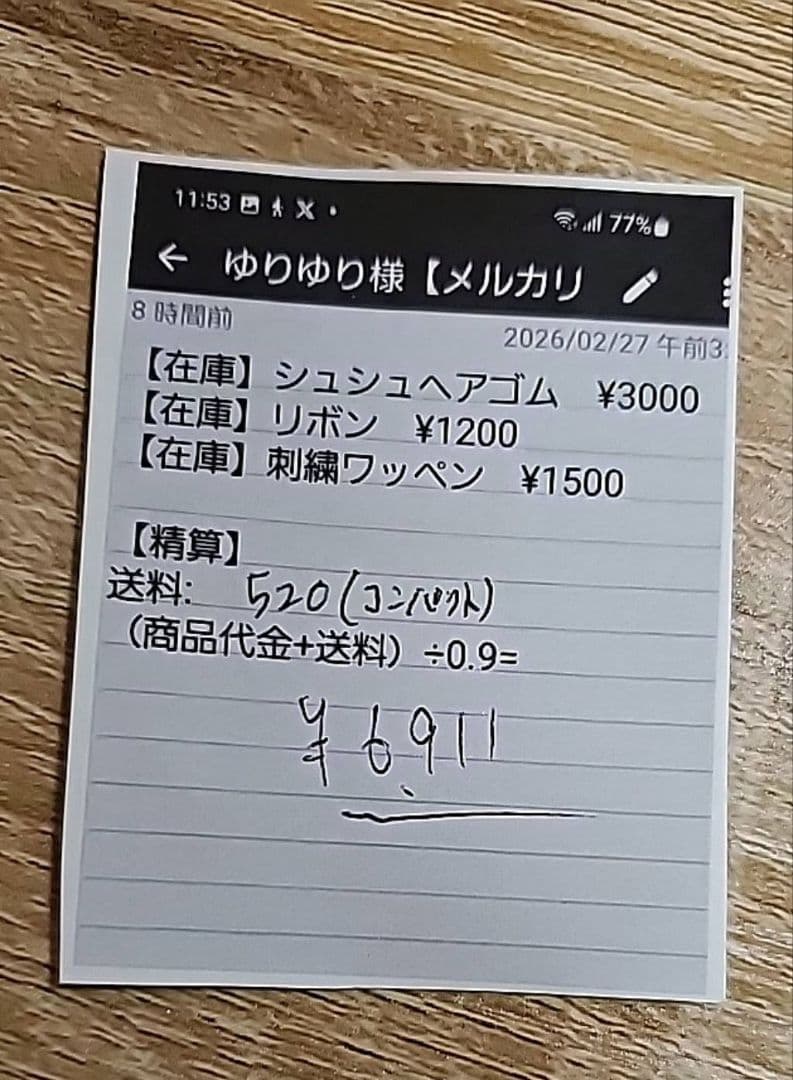 11:53 77%
← ゆりゆり様【メルカリ
8 時間前
2026/02/27 午前3:
【在庫】シュシュヘアゴム ¥3000
【在庫】リボン ¥1200
【在庫】刺繍ワッペン ¥1500
【精算】
送料: 520(コンパクト)
（商品代金+送料）÷0.9=
¥6,911